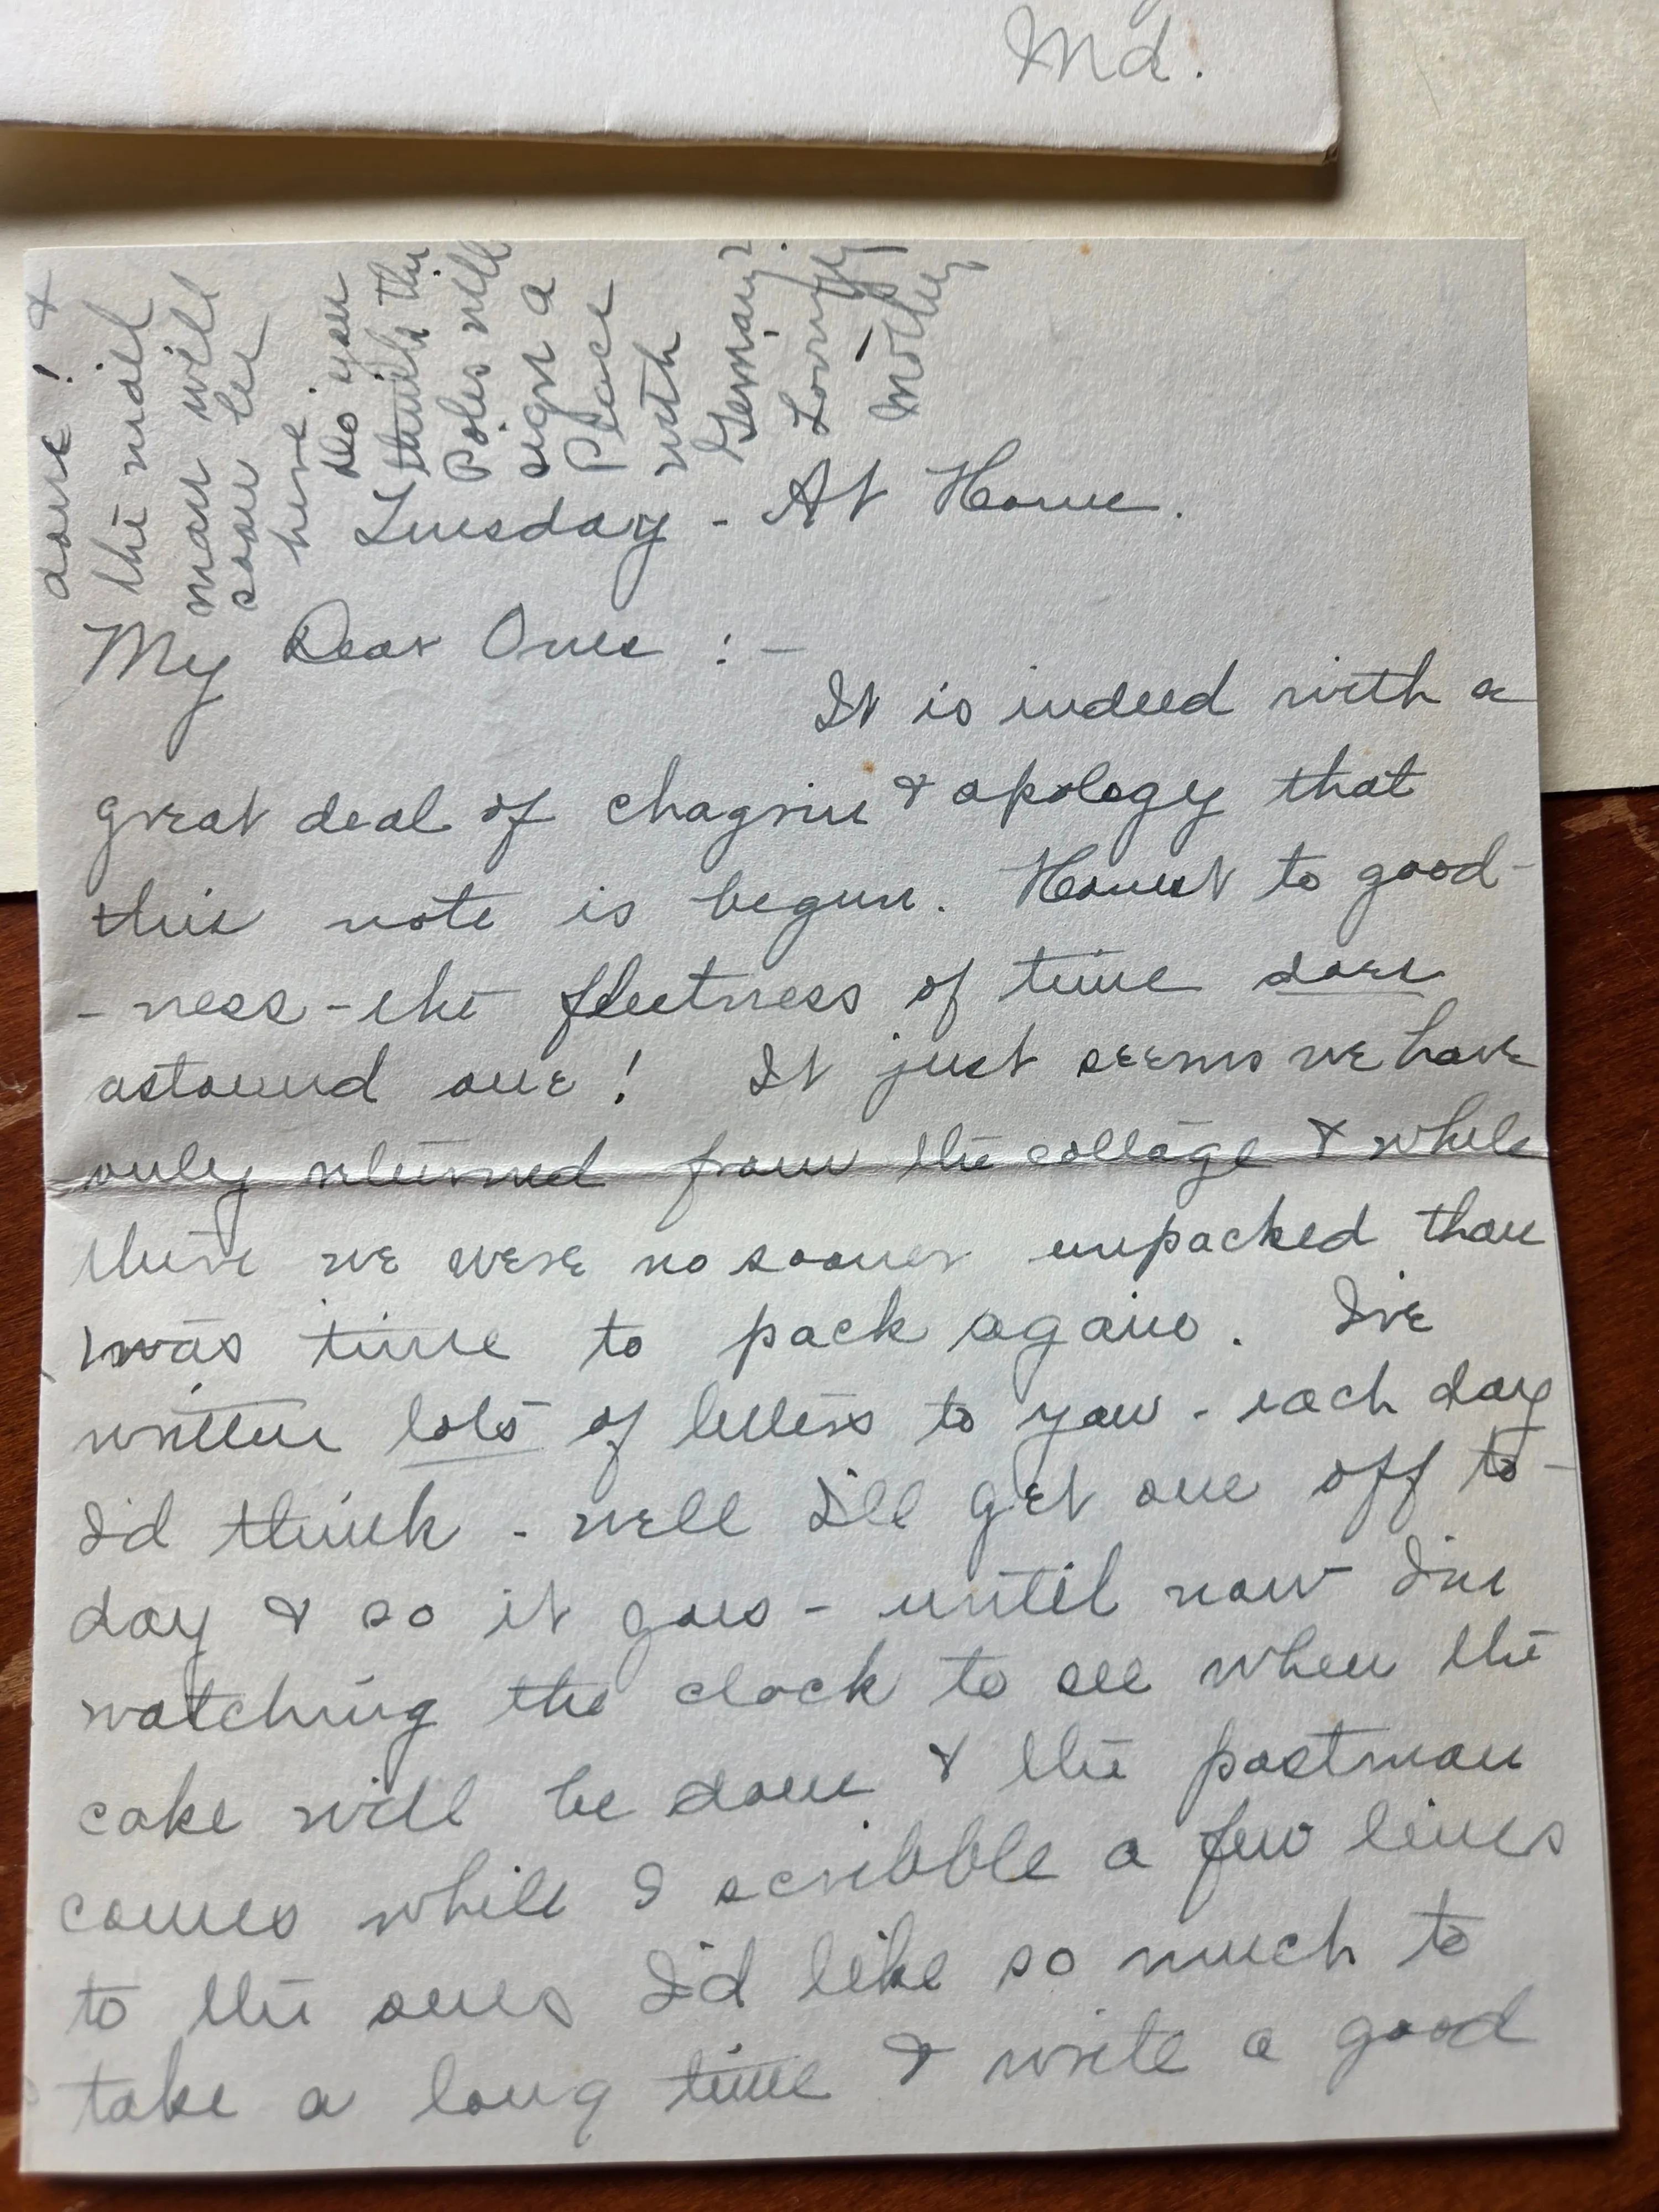 Md.
done! &
the mail
man will
soon be
here.
Do you
think the
Poles will
sign a
Peace
with
Germany?
Lovingly,
Mother
Tuesday - At Home.
My Dear Ones :-
It is indeed with a
great deal of chagrin & apology that
this note is begun. Honest to good-
- ness - the fleetness of time does
astound one! It just seems we have
only returned from the cottage & while
there we were no sooner unpacked than
'twas time to pack again. I've
written lots of letters to you - each day
I'd think - well I'll get one off to-
day & so it goes - until now I'm
watching the clock to see when the
cake will be done & the postman
comes while I scribble a few lines
to the ones I'd like so much to
take a long time & write a good